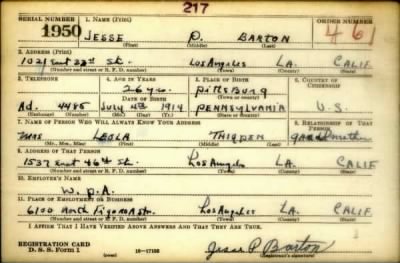 217
SERIAL NUMBER 1. NAME (Print) ORDER NUMBER
1950 JESSE P. BARTON 461
(First) (Middle) (Last)
2. ADDRESS (Print)
1021 East 33rd St. Los Angeles LA. CALIF
(Number and street or R. F. D. number) (Town) (County) (State)
3. TELEPHONE 4. AGE IN YEARS 5. PLACE OF BIRTH 6. COUNTRY OF CITIZENSHIP
26 yrs. Pittsburg
DATE OF BIRTH (Town or county)
Ad. 4485 July 4th 1914 PENNSYLVANIA U.S.
(Exchange) (Number) (Mo.) (Day) (Yr.) (State or country)
7. NAME OF PERSON WHO WILL ALWAYS KNOW YOUR ADDRESS 8. RELATIONSHIP OF THAT PERSON
MRS THIGPEN
(Mr., Mrs., Miss) (First) (Middle) (Last)
9. ADDRESS OF THAT PERSON
1537 East 46th St. Los Angeles LA CALIF
(Number and street or R. F. D. number) (Town) (County) (State)
10. EMPLOYER'S NAME
W.P.A.
11. PLACE OF EMPLOYMENT OR BUSINESS
6100 Los Angeles LA. CALIF
(Number and street or R. F. D. number) (Town) (County) (State)
I AFFIRM THAT I HAVE VERIFIED ABOVE ANSWERS AND THAT THEY ARE TRUE.
REGISTRATION CARD
D. S. S. Form 1 (over) 16-17105 Jesse P Barton
(Registrant's signature)